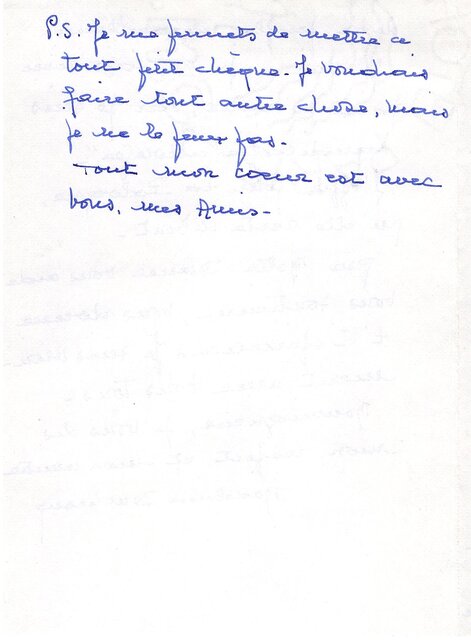 P.S. Je me permets de mettre ce
tout petit chèque. Je voudrais
faire tout autre chose, mais
je ne le peux pas.
Tout mon coeur est avec
vous, mes Amis-